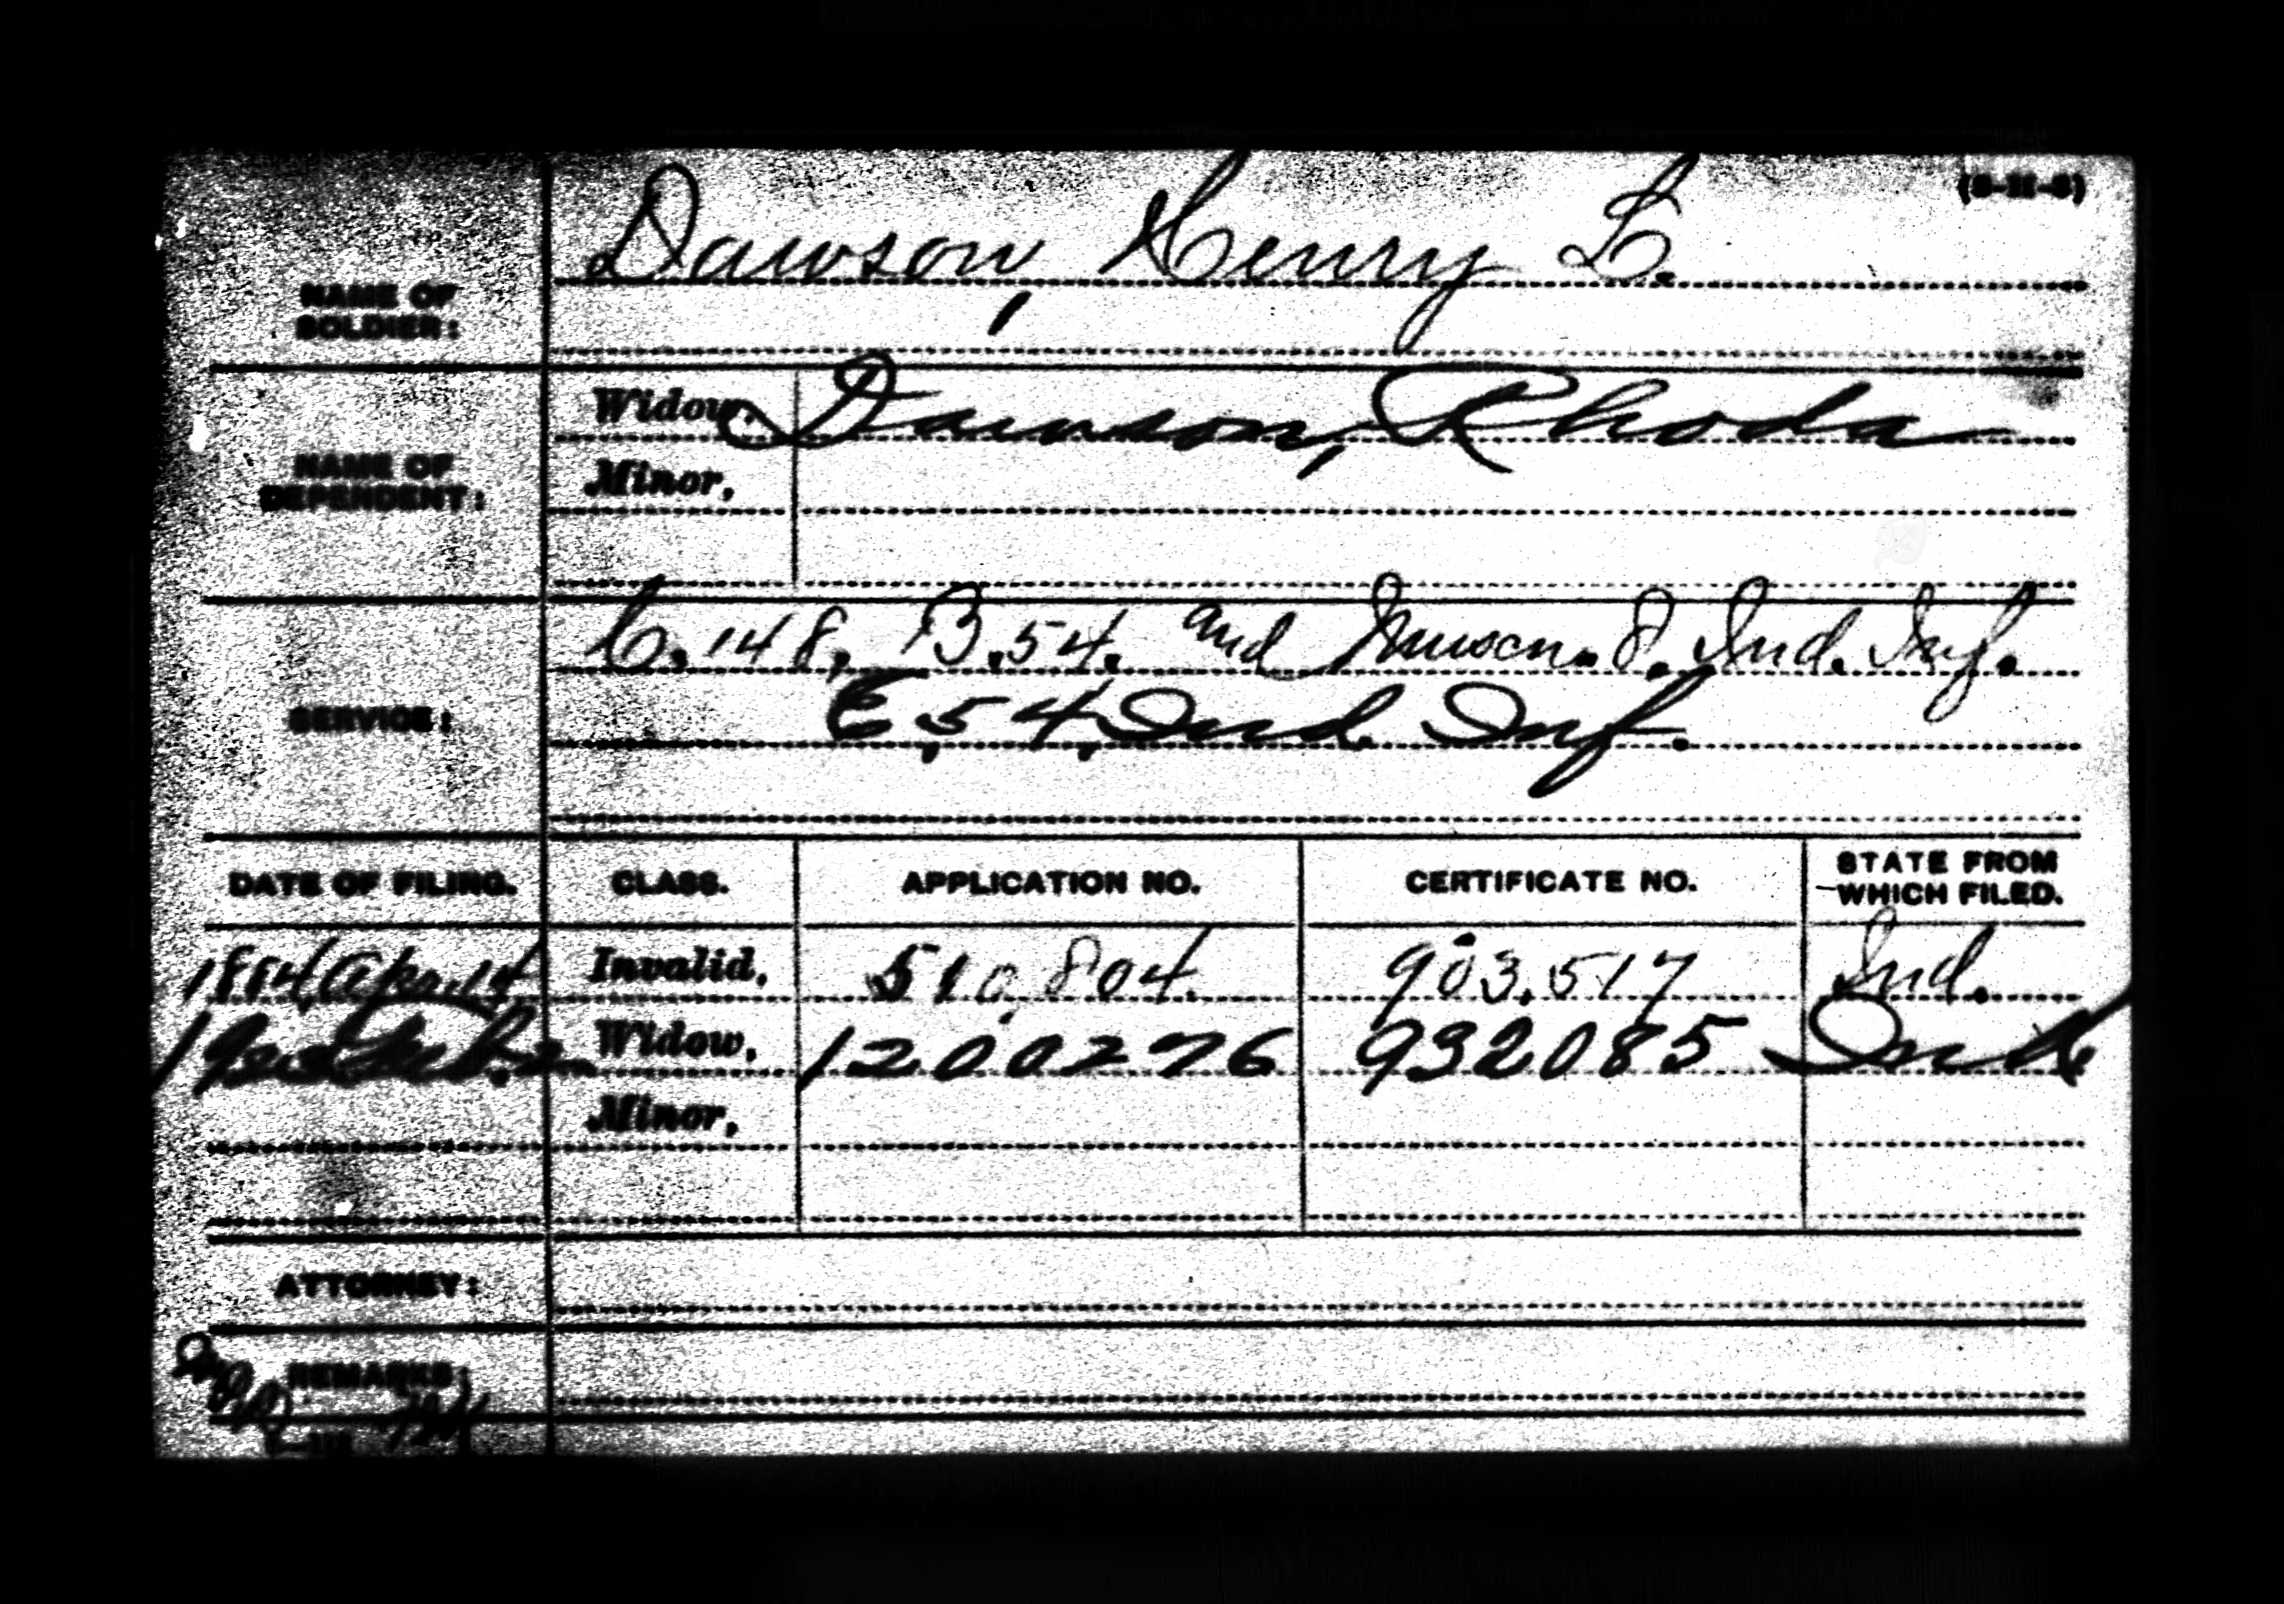 (3-11-6)
Dawson, Henry L.
NAME OF
SOLDIER:
Widow, Dawson, Rhoda
Minor,
NAME OF
DEPENDENT:
C. 148, B. 54. and 8. Ind. Inf.
SERVICE:
E, 54, Ind. Inf.
DATE OF FILING. CLASS. APPLICATION NO. CERTIFICATE NO. STATE FROM
WHICH FILED.
1884, Apr. 14 Invalid, 510,804. 903,517 Ind.
Widow, 1200276 932085 Ind
Minor,
ATTORNEY:
REMARKS: